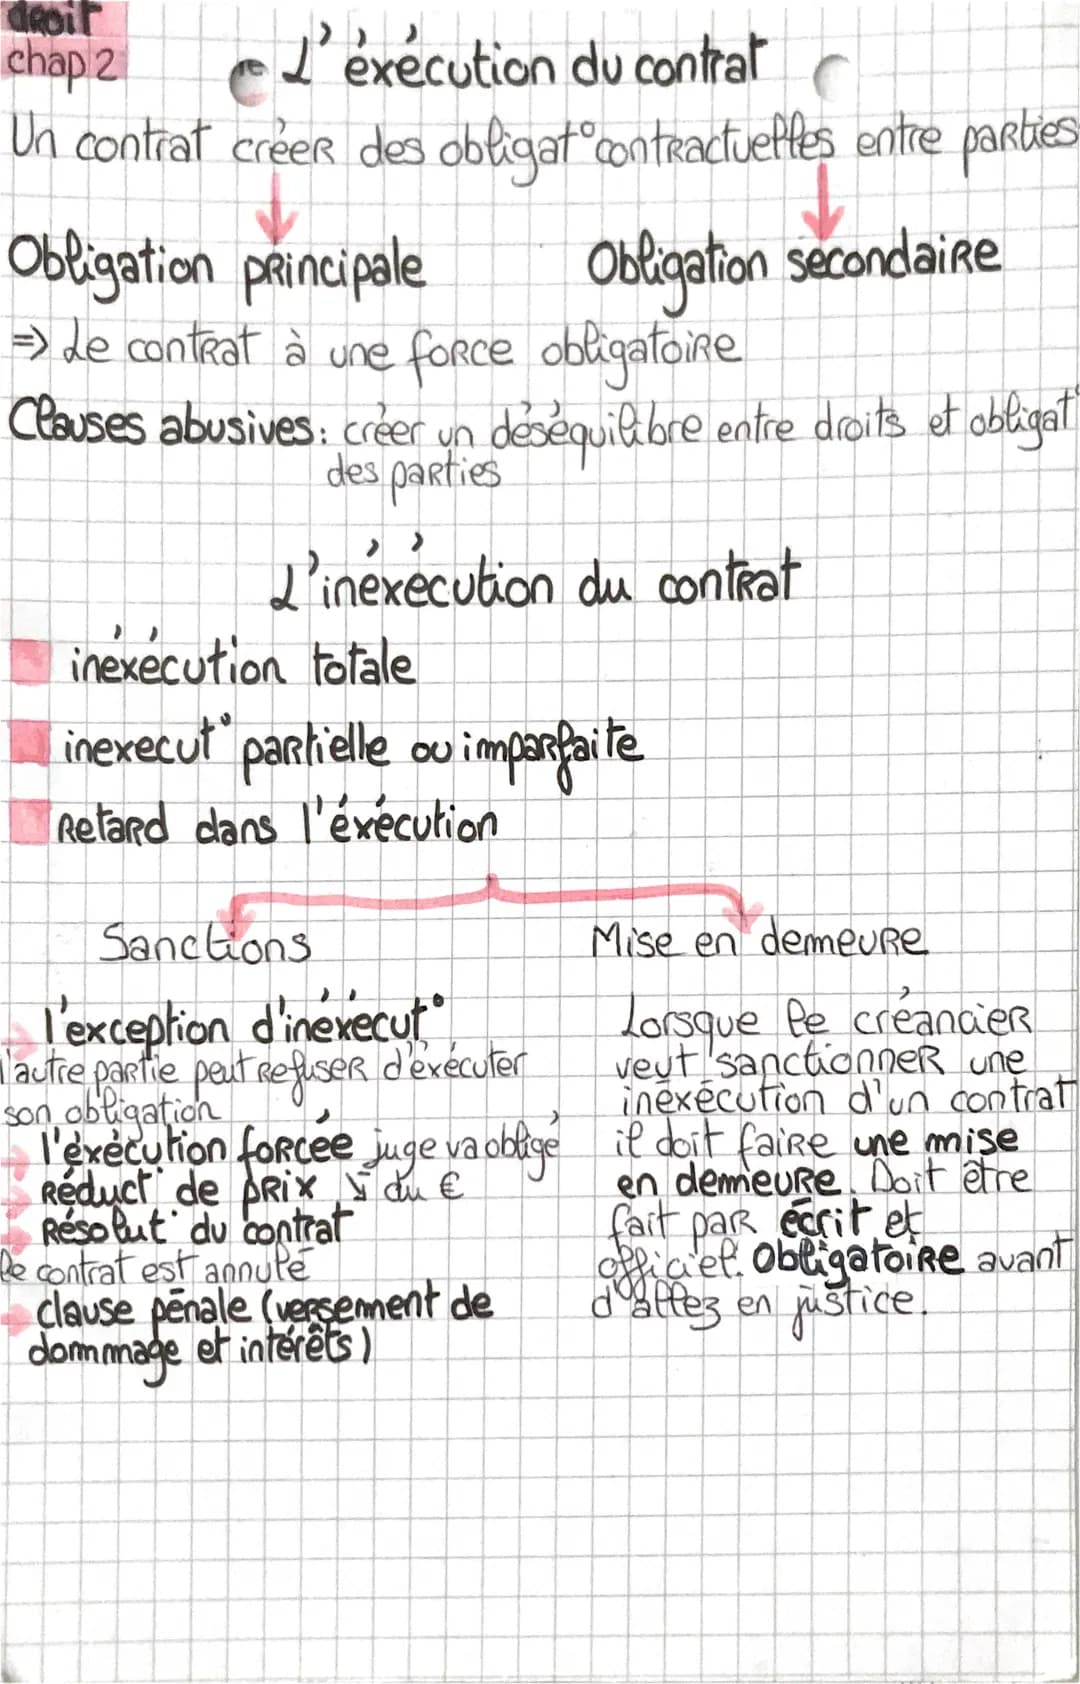 droit
chap 2
L'éxécution du contrat
Un contrat créer des obligat° contractuelles entre parties
Obligation principale
Obligation secondaire
=> Le contrat à une force obligatoire
Clauses abusives: créer un déséquilibre entre droits et obligat°
des parties
L'inéxécution du contrat
inéxécution totale
inexecut° partielle ou imparfaite
Retard dans l'éxécution
Sanctions
l'exception d'inéxécut°
l'autre partie peut refuser d'éxécuter
son obligation
l'éxécution forcée juge va obligé
Réduct° de prix ↓ du €
Résolut° du contrat
le contrat est annulé
clause pénale (versement de
dommage et intérêts)
Mise en demeure
Lorsque le créancier
veut sanctionner une
inéxécution d'un contrat
il doit faire une mise
en demeure. Doit être
fait par écrit et
officiel. Obligatoire avant
d'allez en justice.